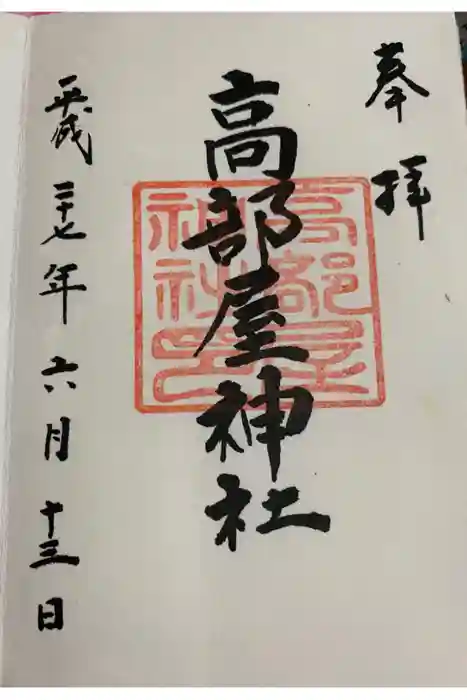 奉拝
高部屋神社
高部屋神社印
平成二十七年六月十三日